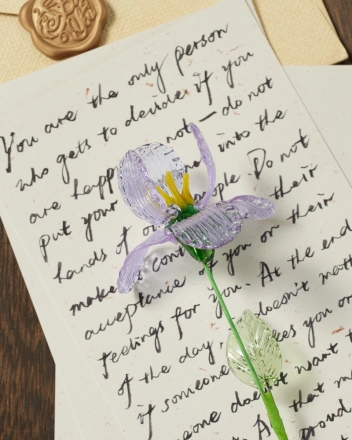 You are the only person
who gets to decide if you
are happ not – do not
put your into the
hands of o people. Do not
make cont you or their
acceptance their
feelings for you. At the end
of the day, doesn't matt
if someone es you or
eone doesn't want t
At that m
proud